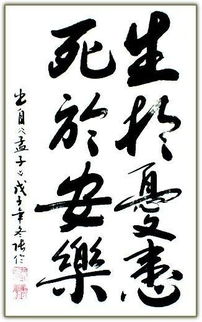 生於憂患
死於安樂
出自《孟子》戊子年冬